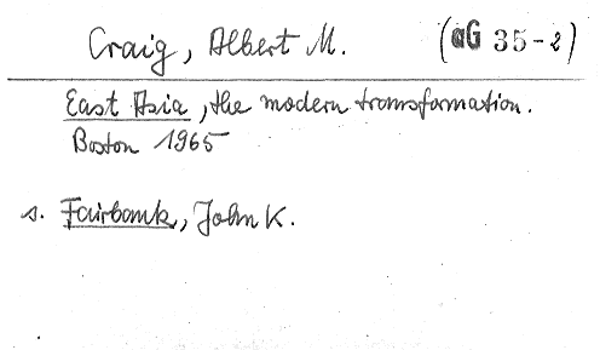 Craig, Albert M. (aG 35-2)
East Asia, the modern transformation.
Boston 1965
s. Fairbank, John K.